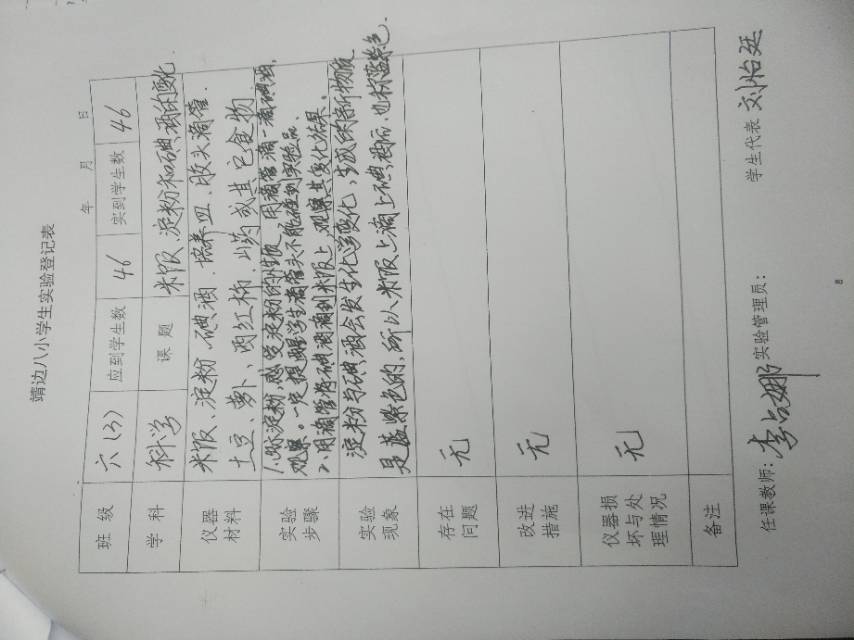 靖边八小学生实验登记表
年 月 日
班级 六(3) 应到学生数 46 实到学生数 46
学科 科学 课题 米饭、淀粉和碘酒的变化.
仪器材料 米饭、淀粉、碘酒、培养皿、胶头滴管.
土豆、萝卜、西红柿、山药或其它食物
实验步骤 淀粉,感受淀粉的性质,用滴管滴一滴碘酒,
观察。一定提醒学生滴管头不能碰到实验品
2、用滴管将碘酒滴到米饭上,观察其变化结果。
实验现象 淀粉与碘酒会发生化学变化,生成的新物质
是蓝紫色的,所以米饭上滴上碘酒后,也称蓝紫色.
存在问题 无
改进措施 无
仪器损坏与处理情况 无
备注
任课教师: 李占娜 实验管理员: 学生代表 刘怡廷
8